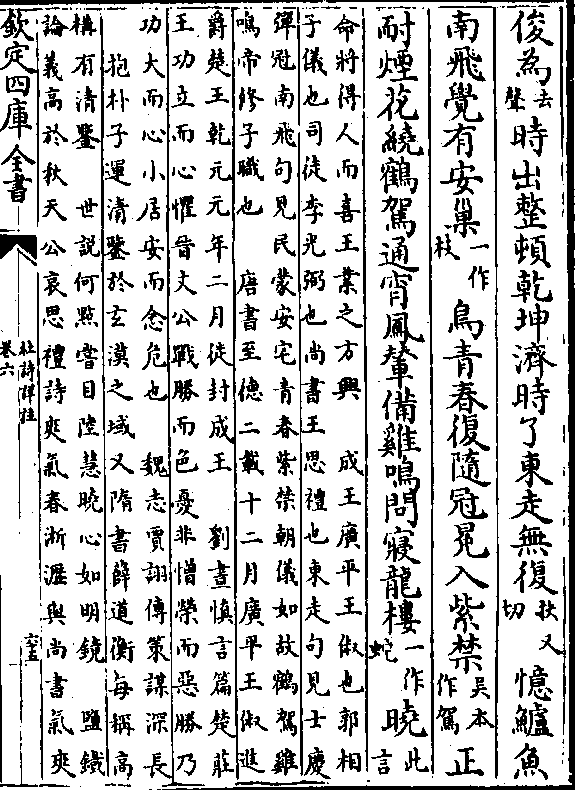 俊為去聲時出整頓乾坤濟時了東走無復扶又切憶鱸魚
南飛覺有安巢一作枝鳥青春復隨冠冕入紫禁吳本作駕正
耐煙花繞鶴駕通宵鳳輦備雞鳴問寢龍樓一作蛇曉此言
命將得人而喜王業之方興　成王廣平王俶也郭相
子儀也司徒李光弼也尚書王思禮也東走句見士慶
彈冠南飛句見民蒙安宅青春紫禁朝儀如故鶴駕雞
鳴帝修子職也　唐書至德二載十二月廣平王俶進
爵楚王乾元元年二月徙封成王　劉晝慎言篇楚莊
王功立而心懼晉文公戰勝而色憂非憎榮而惡勝乃
功大而心小居安而念危也　魏志賈詡傳策謀深長
抱朴子運清鑒於玄漠之域又隋書薛道衡每稱高
構有清鑒　世説何點嘗目陸慧曉心如明鏡　鹽鐵
論義高於秋天　公哀思禮詩爽氣春淅瀝與尚書氣爽
欽定四庫全書
杜詩詳注
卷六